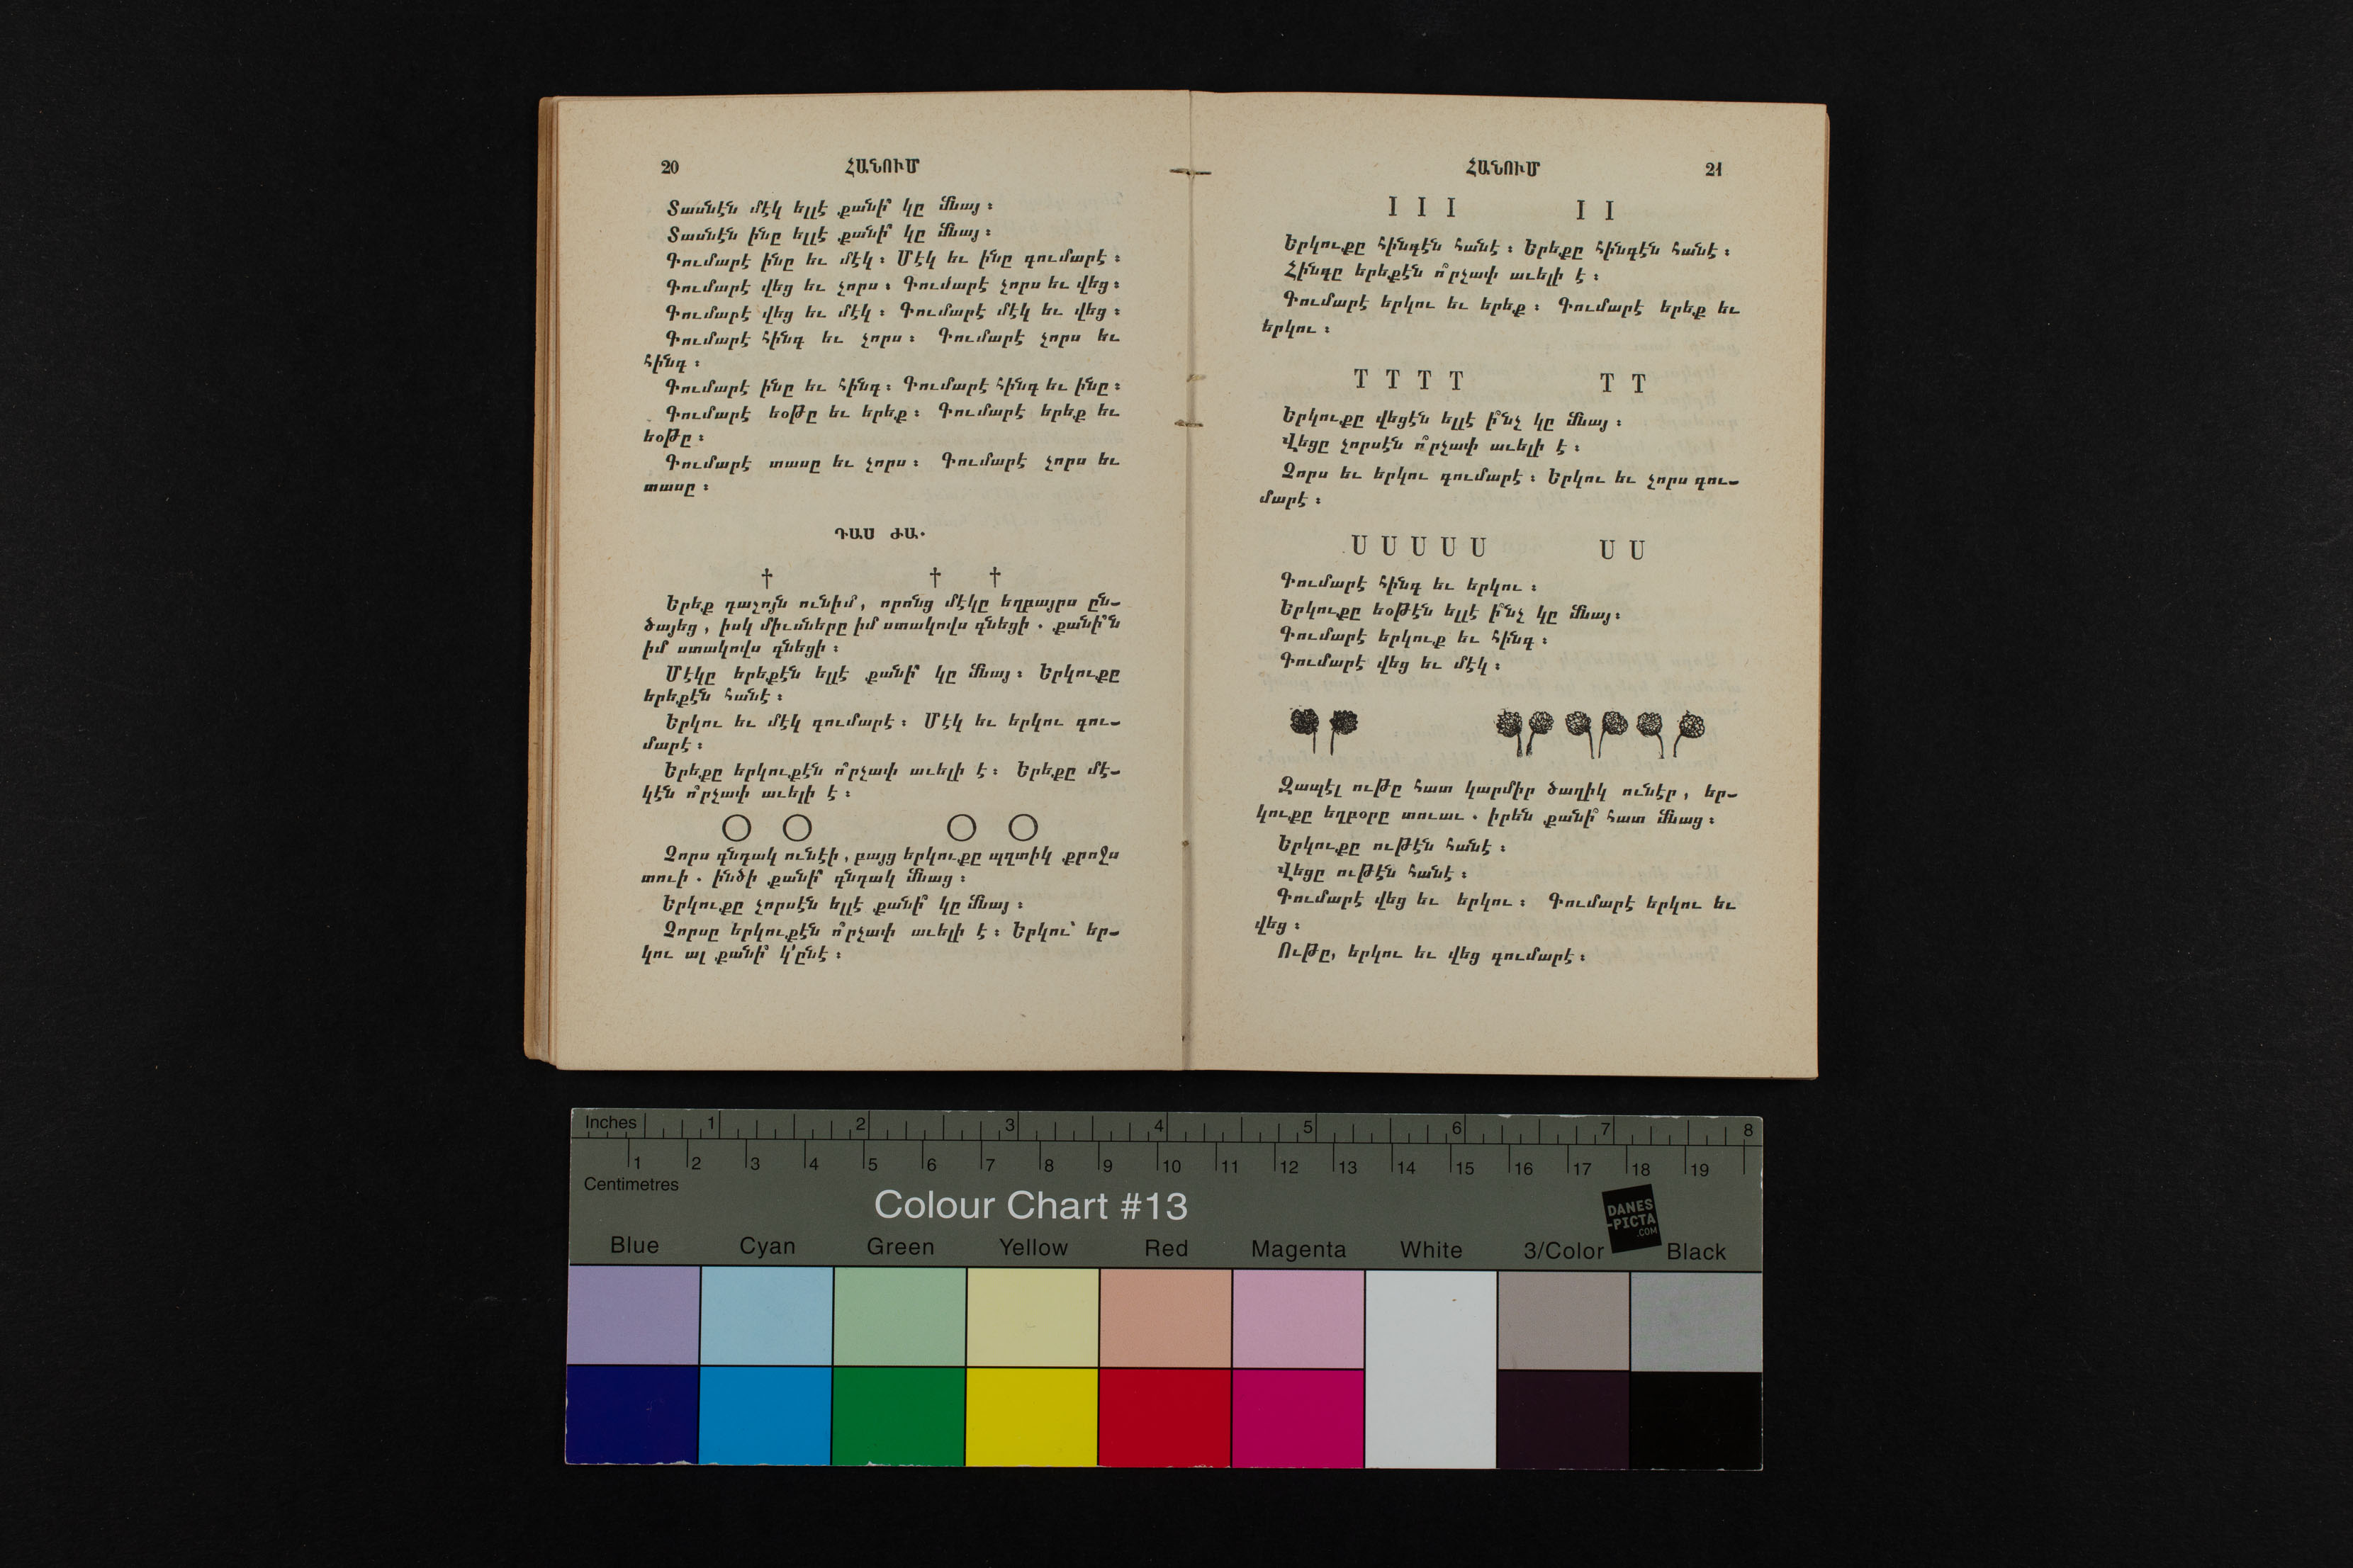 20 ՀԱՆՈՒՄ
Տասնէն մէկ ելլէ քանի՞ կը մնայ ։
Տասնէն ինը ելլէ քանի՞ կը մնայ ։
Գումարէ ինը եւ մէկ ։ Մէկ եւ ինը գումարէ ։
Գումարէ վեց եւ չորս ։ Գումարէ չորս եւ վեց ։
Գումարէ վեց եւ մէկ ։ Գումարէ մէկ եւ վեց ։
Գումարէ հինգ եւ չորս ։ Գումարէ չորս եւ
հինգ ։
Գումարէ ինը եւ հինգ ։ Գումարէ հինգ եւ ինը ։
Գումարէ եօթը եւ երեք ։ Գումարէ երեք եւ
եօթը ։
Գումարէ տասը եւ չորս ։ Գումարէ չորս եւ
տասը ։
ԴԱՍ ԺԱ.
† † †
Երեք դաչոյն ունիմ, որոնց մէկը եղբայրս ըն–
ծայեց, իսկ միւսները իմ ստակովս գնեցի . քանի՞ն
իմ ստակովս գնեցի ։
Մէկը երեքէն ելլէ քանի՞ կը մնայ ։ Երկուքը
երեքէն հանէ ։
Երկու եւ մէկ գումարէ ։ Մէկ եւ երկու գու–
մարէ ։
Երեքը երկուքէն ո՞րչափ աւելի է ։ Երեքը մէ–
կէն ո՞րչափ աւելի է ։
○ ○ ○ ○
Չորս գնդակ ունէի, բայց երկուքը պզտիկ քրոջս
տուի . ինծի քանի՞ գնդակ մնաց ։
Երկուքը չորսէն ելլէ քանի՞ կը մնայ ։
Չորսը երկուքէն ո՞րչափ աւելի է ։ Երկու՝ եր–
կու ալ քանի՞ կ՚ընէ ։
ՀԱՆՈՒՄ 21
I I I I I
Երկուքը հինգէն հանէ ։ Երեքը հինգէն հանէ ։
Հինգը երեքէն ո՞րչափ աւելի է ։
Գումարէ երկու եւ երեք ։ Գումարէ երեք եւ
երկու ։
T T T T T T
Երկուքը վեցէն ելլէ ի՞նչ կը մնայ ։
Վեցը չորսէն ո՞րչափ աւելի է ։
Չորս եւ երկու գումարէ ։ Երկու եւ չորս գու–
մարէ ։
U U U U U U U
Գումարէ հինգ եւ երկու ։
Երկուքը եօթէն ելլէ ի՞նչ կը մնայ ։
Գումարէ երկուք եւ հինգ ։
Գումարէ վեց եւ մէկ ։
Զապէլ ութը հատ կարմիր ծաղիկ ունէր, եր–
կուքը եղբօրը տուաւ . իրեն քանի՞ հատ մնաց ։
Երկուքը ութէն հանէ ։
Վեցը ութէն հանէ ։
Գումարէ վեց եւ երկու ։ Գումարէ երկու եւ
վեց ։
Ութը, երկու եւ վեց գումարէ ։
Inches 1 2 3 4 5 6 7 8
1 2 3 4 5 6 7 8 9 10 11 12 13 14 15 16 17 18 19
Centimetres
Colour Chart #13
DANES
-PICTA
.COM
Blue Cyan Green Yellow Red Magenta White 3/Color Black